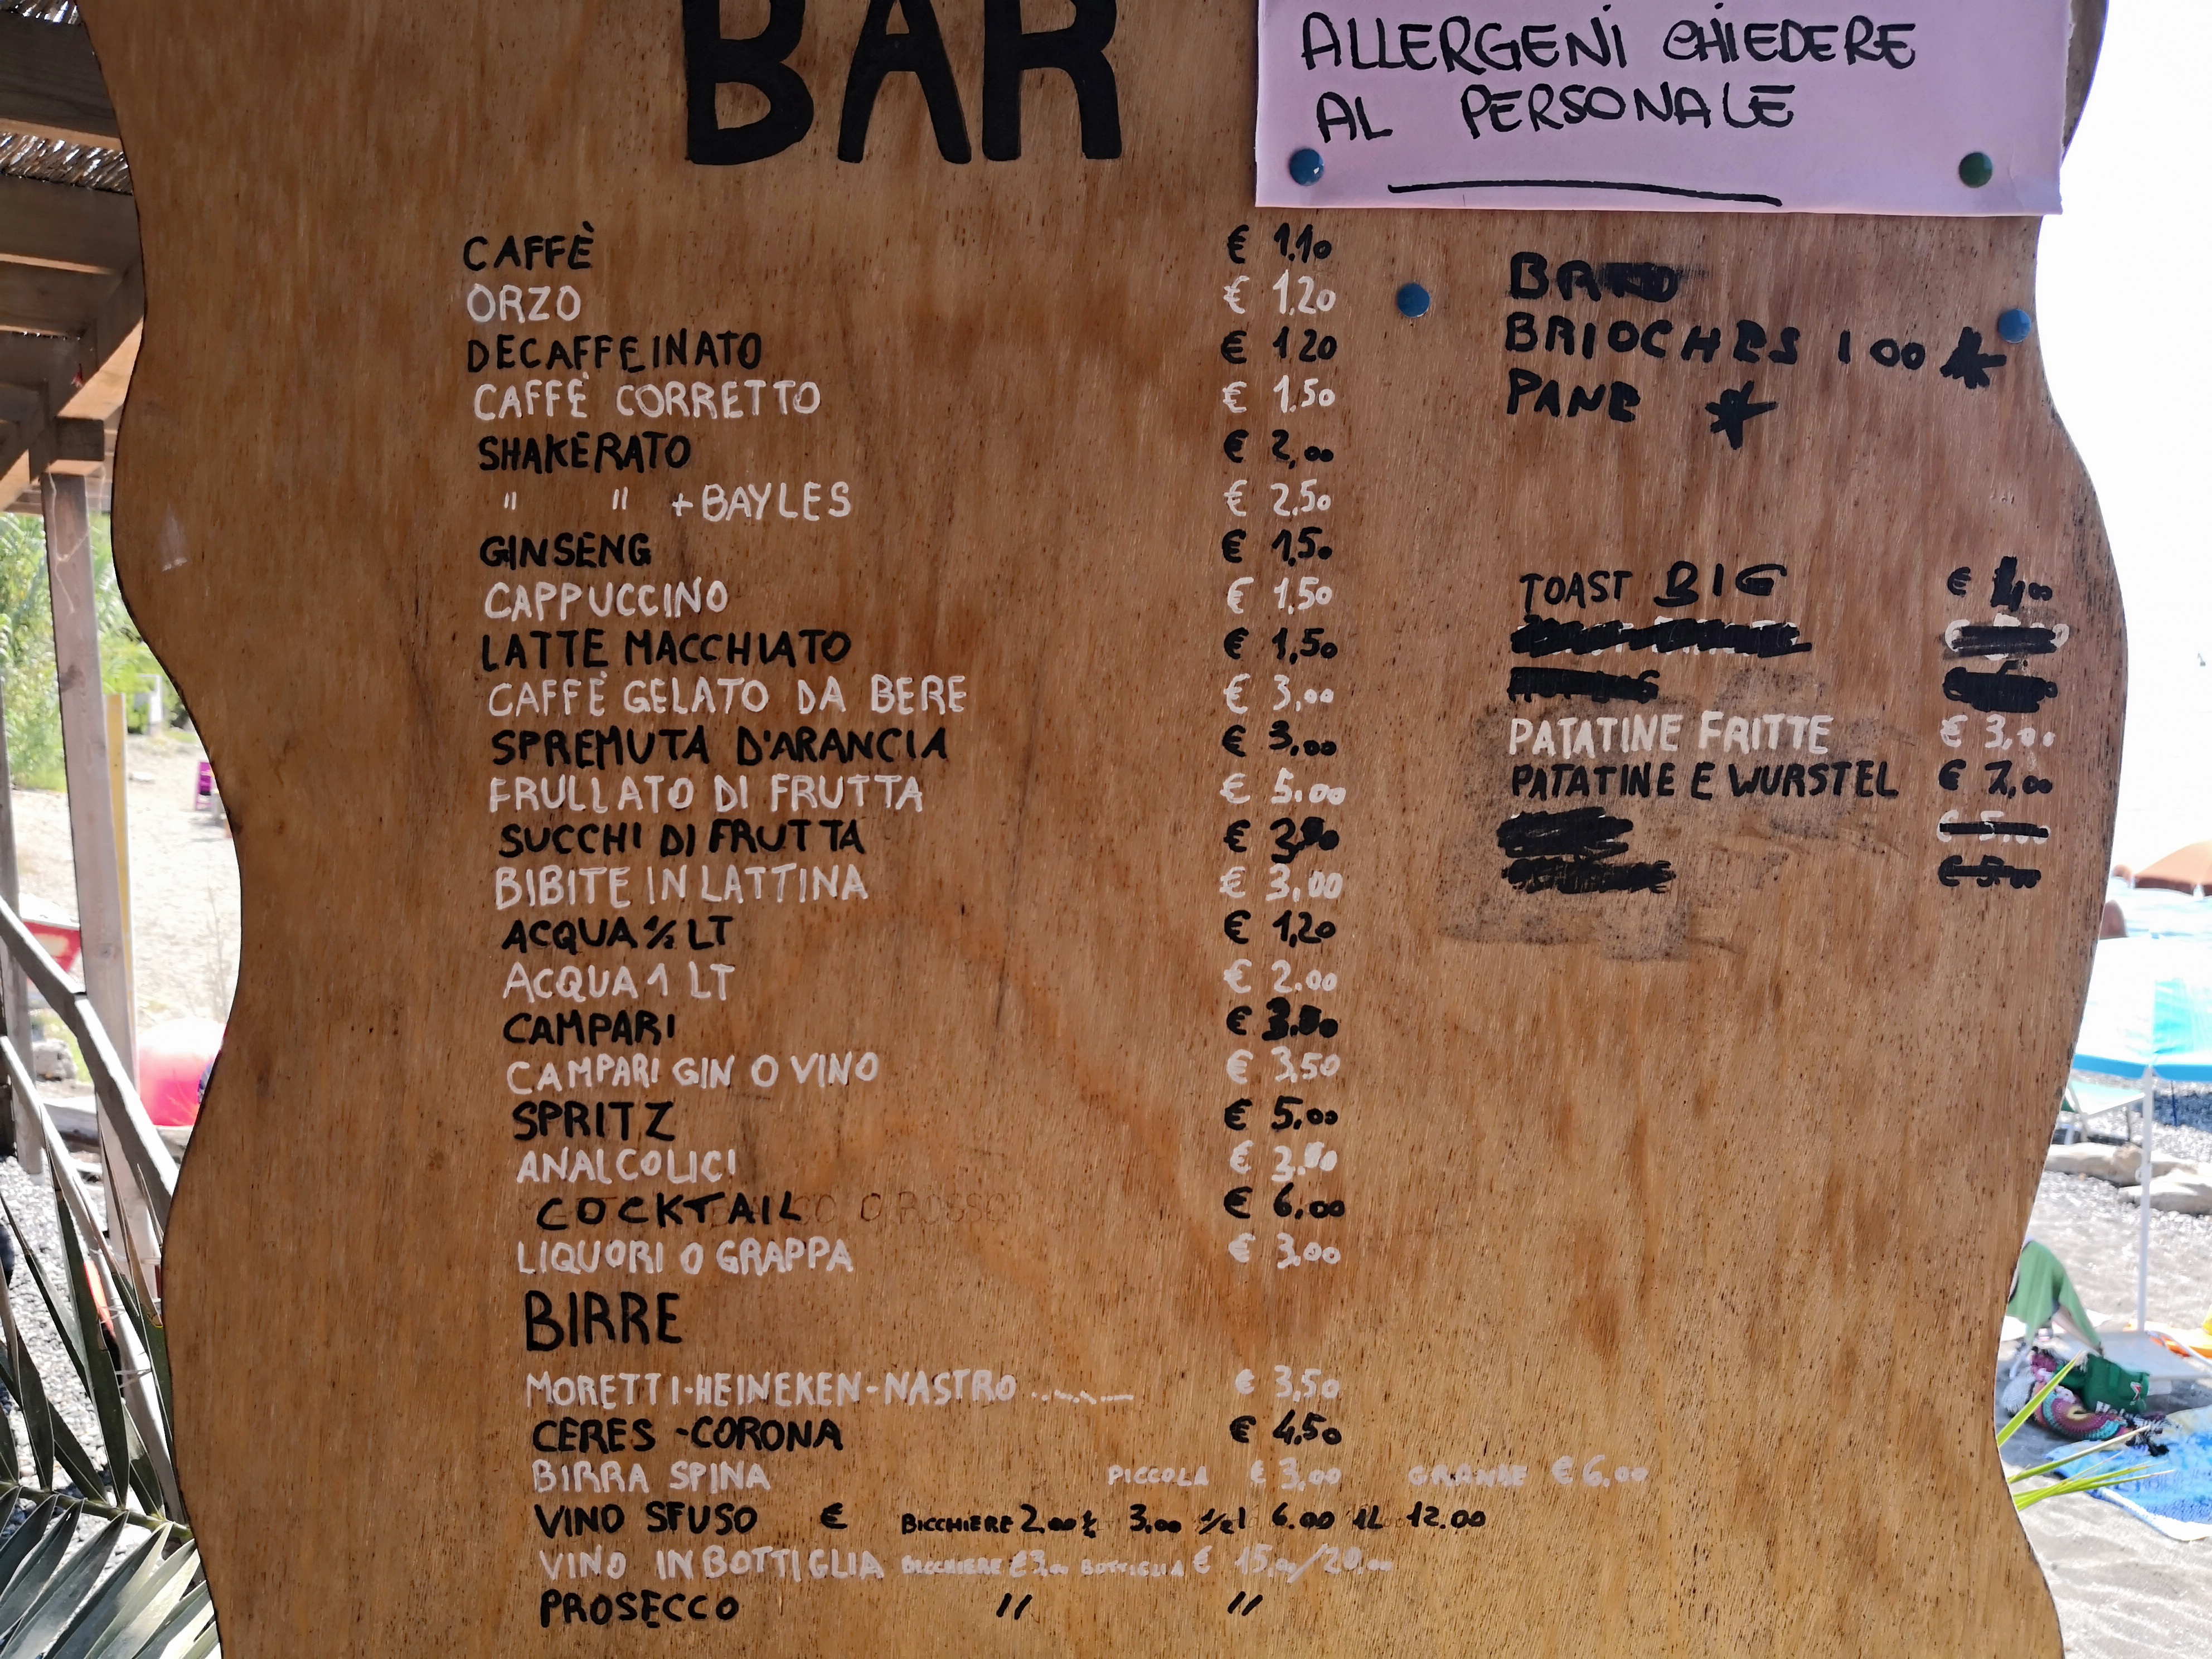 BAR
ALLERGENI CHIEDERE
AL PERSONALE
CAFFÈ € 1,10
ORZO € 1,20
DECAFFEINATO € 1 20
CAFFÈ CORRETTO € 1.50
SHAKERATO € 2,00
" " + BAYLES € 2,50
GINSENG € 1,50
CAPPUCCINO € 1,50
LATTE MACCHIATO € 1,50
CAFFÈ GELATO DA BERE € 3,00
SPREMUTA D'ARANCIA € 3,00
FRULLATO DI FRUTTA € 5.00
SUCCHI DI FRUTTA €
BIBITE IN LATTINA € 3,00
ACQUA ½ LT € 1,20
ACQUA 1 LT € 2.00
CAMPARI €
CAMPARI GIN O VINO € 3,50
SPRITZ € 5,00
ANALCOLICI €
COCKTAIL € 6,00
LIQUORI O GRAPPA € 3,00
BIRRE
MORETTI-HEINEKEN-NASTRO € 3,50
CERES - CORONA € 4,50
BIRRA SPINA PICCOLA € 3,00 GRANDE € 6,00
VINO SFUSO € BICCHIERE 2,00 3,00 6.00 1L 12.00
VINO IN BOTTIGLIA BICCHIERE € 3,00 BOTTIGLIA € 15,00/20,00
PROSECCO " "
BRIOCHES 1 00 *
PANE *
TOAST BIG €
PATATINE FRITTE € 3,00
PATATINE E WURSTEL €